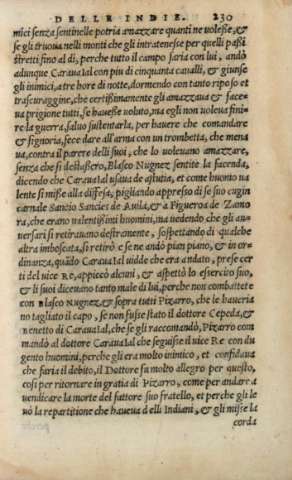 DELLE INDIE. 230
mici senza sentinelle potria amazzare quanti ne uolesse, &
se gli truoua nelli monti che gli intratenesse per quelli passi
stretti fino al di, perche tutto il campo saria con lui, andò
adunque Carauaial con piu di cinquanta caualli, & giunse
gli inimici, a tre hore di notte, dormendo con tanto riposo et
trascuraggine, che certissimamente gli amazzaua & face-
ua prigione tutti, se hauesse voluto, ma egli non uoleua fini-
re la guerra, saluo sustentarla, per hauere che comandare
& signoria, fece dare all'arma con un trombetta, che mena
ua, contra il parere delli suoi, che lo uoleuano amazzare,
senza che si destassero, Blasco Nugnez sentite la facenda,
dicendo che Carauaial usaua de astutia, et come huomo ua
lente si misse alla diffesa, pigliando appresso di se suo cugin
carnale Sancio Sancies de Auila, & a Figueroa de Zamo
ra, che erano ualentissimi huomini, ma uedendo che gli au-
uersari si retirauano destramente, sospettando di qualche
altra imboscata, si retirò e se ne andò pian piano, & in or-
dinanza, quādo Carauaial uidde che era andato, prese cer
ti del uice RE, appiccò alcuni, & aspettò lo esercito suo,
& li suoi diceuano tanto male di lui, perche non combattete
con Blasco Nugnez, & sopra tutti Pizarro, che li haueria
no tagliato il capo, se non fusse stato il dottore Cepeda, &
Benetto di Carauaial, che se gli raccomandò, Pizarro com
mandò al dottore Carauaial che seguisse il uice Re con du
gento huomini, perche gli era molto inimico, et confidaua
che faria il debito, il Dottore fu molto allegro per questo,
cosi per ritornare in gratia di Pizarro, come per andare a
uendicare la morte del fattore suo fratello, et perche gli le
uò la repartitione che haueua delli Indiani, & gli misse la
corda